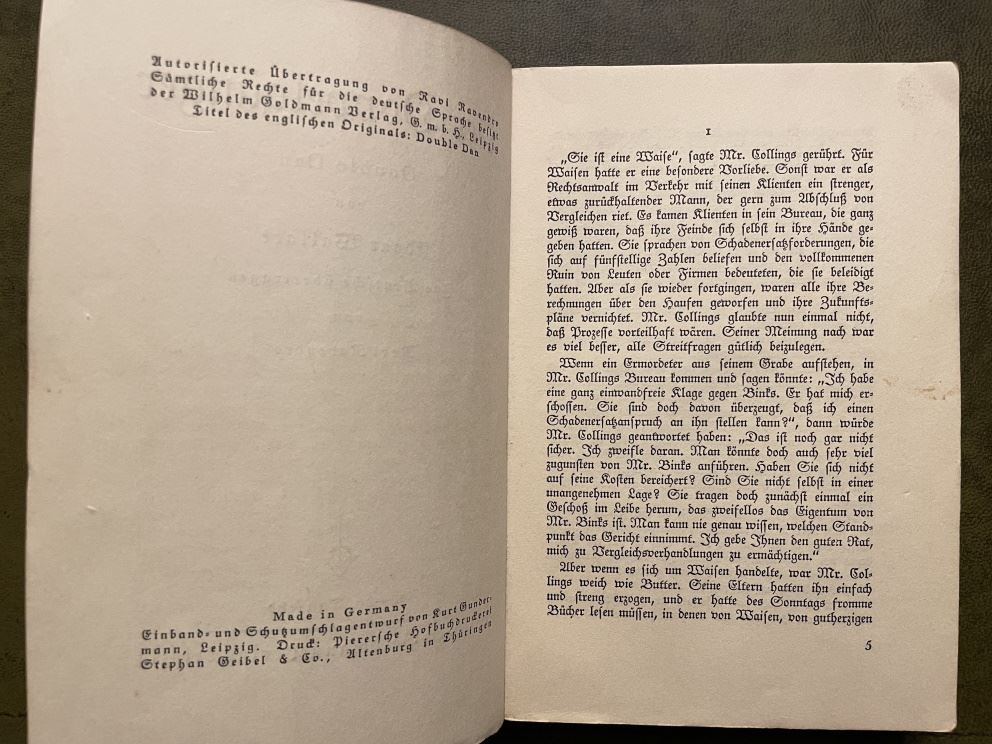 Autorisierte Übertragung von Ravi Ravendro
Sämtliche Rechte für die deutsche Sprache besitzt
der Wilhelm Goldmann Verlag, G. m. b. H., Leipzig
Titel des englischen Originals: Double Dan
Made in Germany
Einband- und Schutzumschlagentwurf von Kurt Gunder-
mann, Leipzig. Druck: Pierersche Hofbuchdruckerei
Stephan Geibel & Co., Altenburg in Thüringen
1
„Sie ist eine Waise“, sagte Mr. Collings gerührt. Für
Waisen hatte er eine besondere Vorliebe. Sonst war er als
Rechtsanwalt im Verkehr mit seinen Klienten ein strenger,
etwas zurückhaltender Mann, der gern zum Abschluß von
Vergleichen riet. Es kamen Klienten in sein Bureau, die ganz
gewiß waren, daß ihre Feinde sich selbst in ihre Hände ge-
geben hatten. Sie sprachen von Schadenersatzforderungen, die
sich auf fünfstellige Zahlen beliefen und den vollkommenen
Ruin von Leuten oder Firmen bedeuteten, die sie beleidigt
hatten. Aber als sie wieder fortgingen, waren alle ihre Be-
rechnungen über den Haufen geworfen und ihre Zukunfts-
pläne vernichtet. Mr. Collings glaubte nun einmal nicht,
daß Prozesse vorteilhaft wären. Seiner Meinung nach war
es viel besser, alle Streitfragen gütlich beizulegen.
Wenn ein Ermordeter aus seinem Grabe aufstehen, in
Mr. Collings Bureau kommen und sagen könnte: „Ich habe
eine ganz einwandfreie Klage gegen Binks. Er hat mich er-
schossen. Sie sind doch davon überzeugt, daß ich einen
Schadenersatzanspruch an ihn stellen kann?“, dann würde
Mr. Collings geantwortet haben: „Das ist noch gar nicht
sicher. Ich zweifle daran. Man könnte doch auch sehr viel
zugunsten von Mr. Binks anführen. Haben Sie sich nicht
auf seine Kosten bereichert? Sind Sie nicht selbst in einer
unangenehmen Lage? Sie tragen doch zunächst einmal ein
Geschoß im Leibe herum, das zweifellos das Eigentum von
Mr. Binks ist. Man kann nie genau wissen, welchen Stand-
punkt das Gericht einnimmt. Ich gebe Ihnen den guten Rat,
mich zu Vergleichsverhandlungen zu ermächtigen.“
Aber wenn es sich um Waisen handelte, war Mr. Col-
lings weich wie Butter. Seine Eltern hatten ihn einfach
und streng erzogen, und er hatte des Sonntags fromme
Bücher lesen müssen, in denen von Waisen, von gutherzigen
5